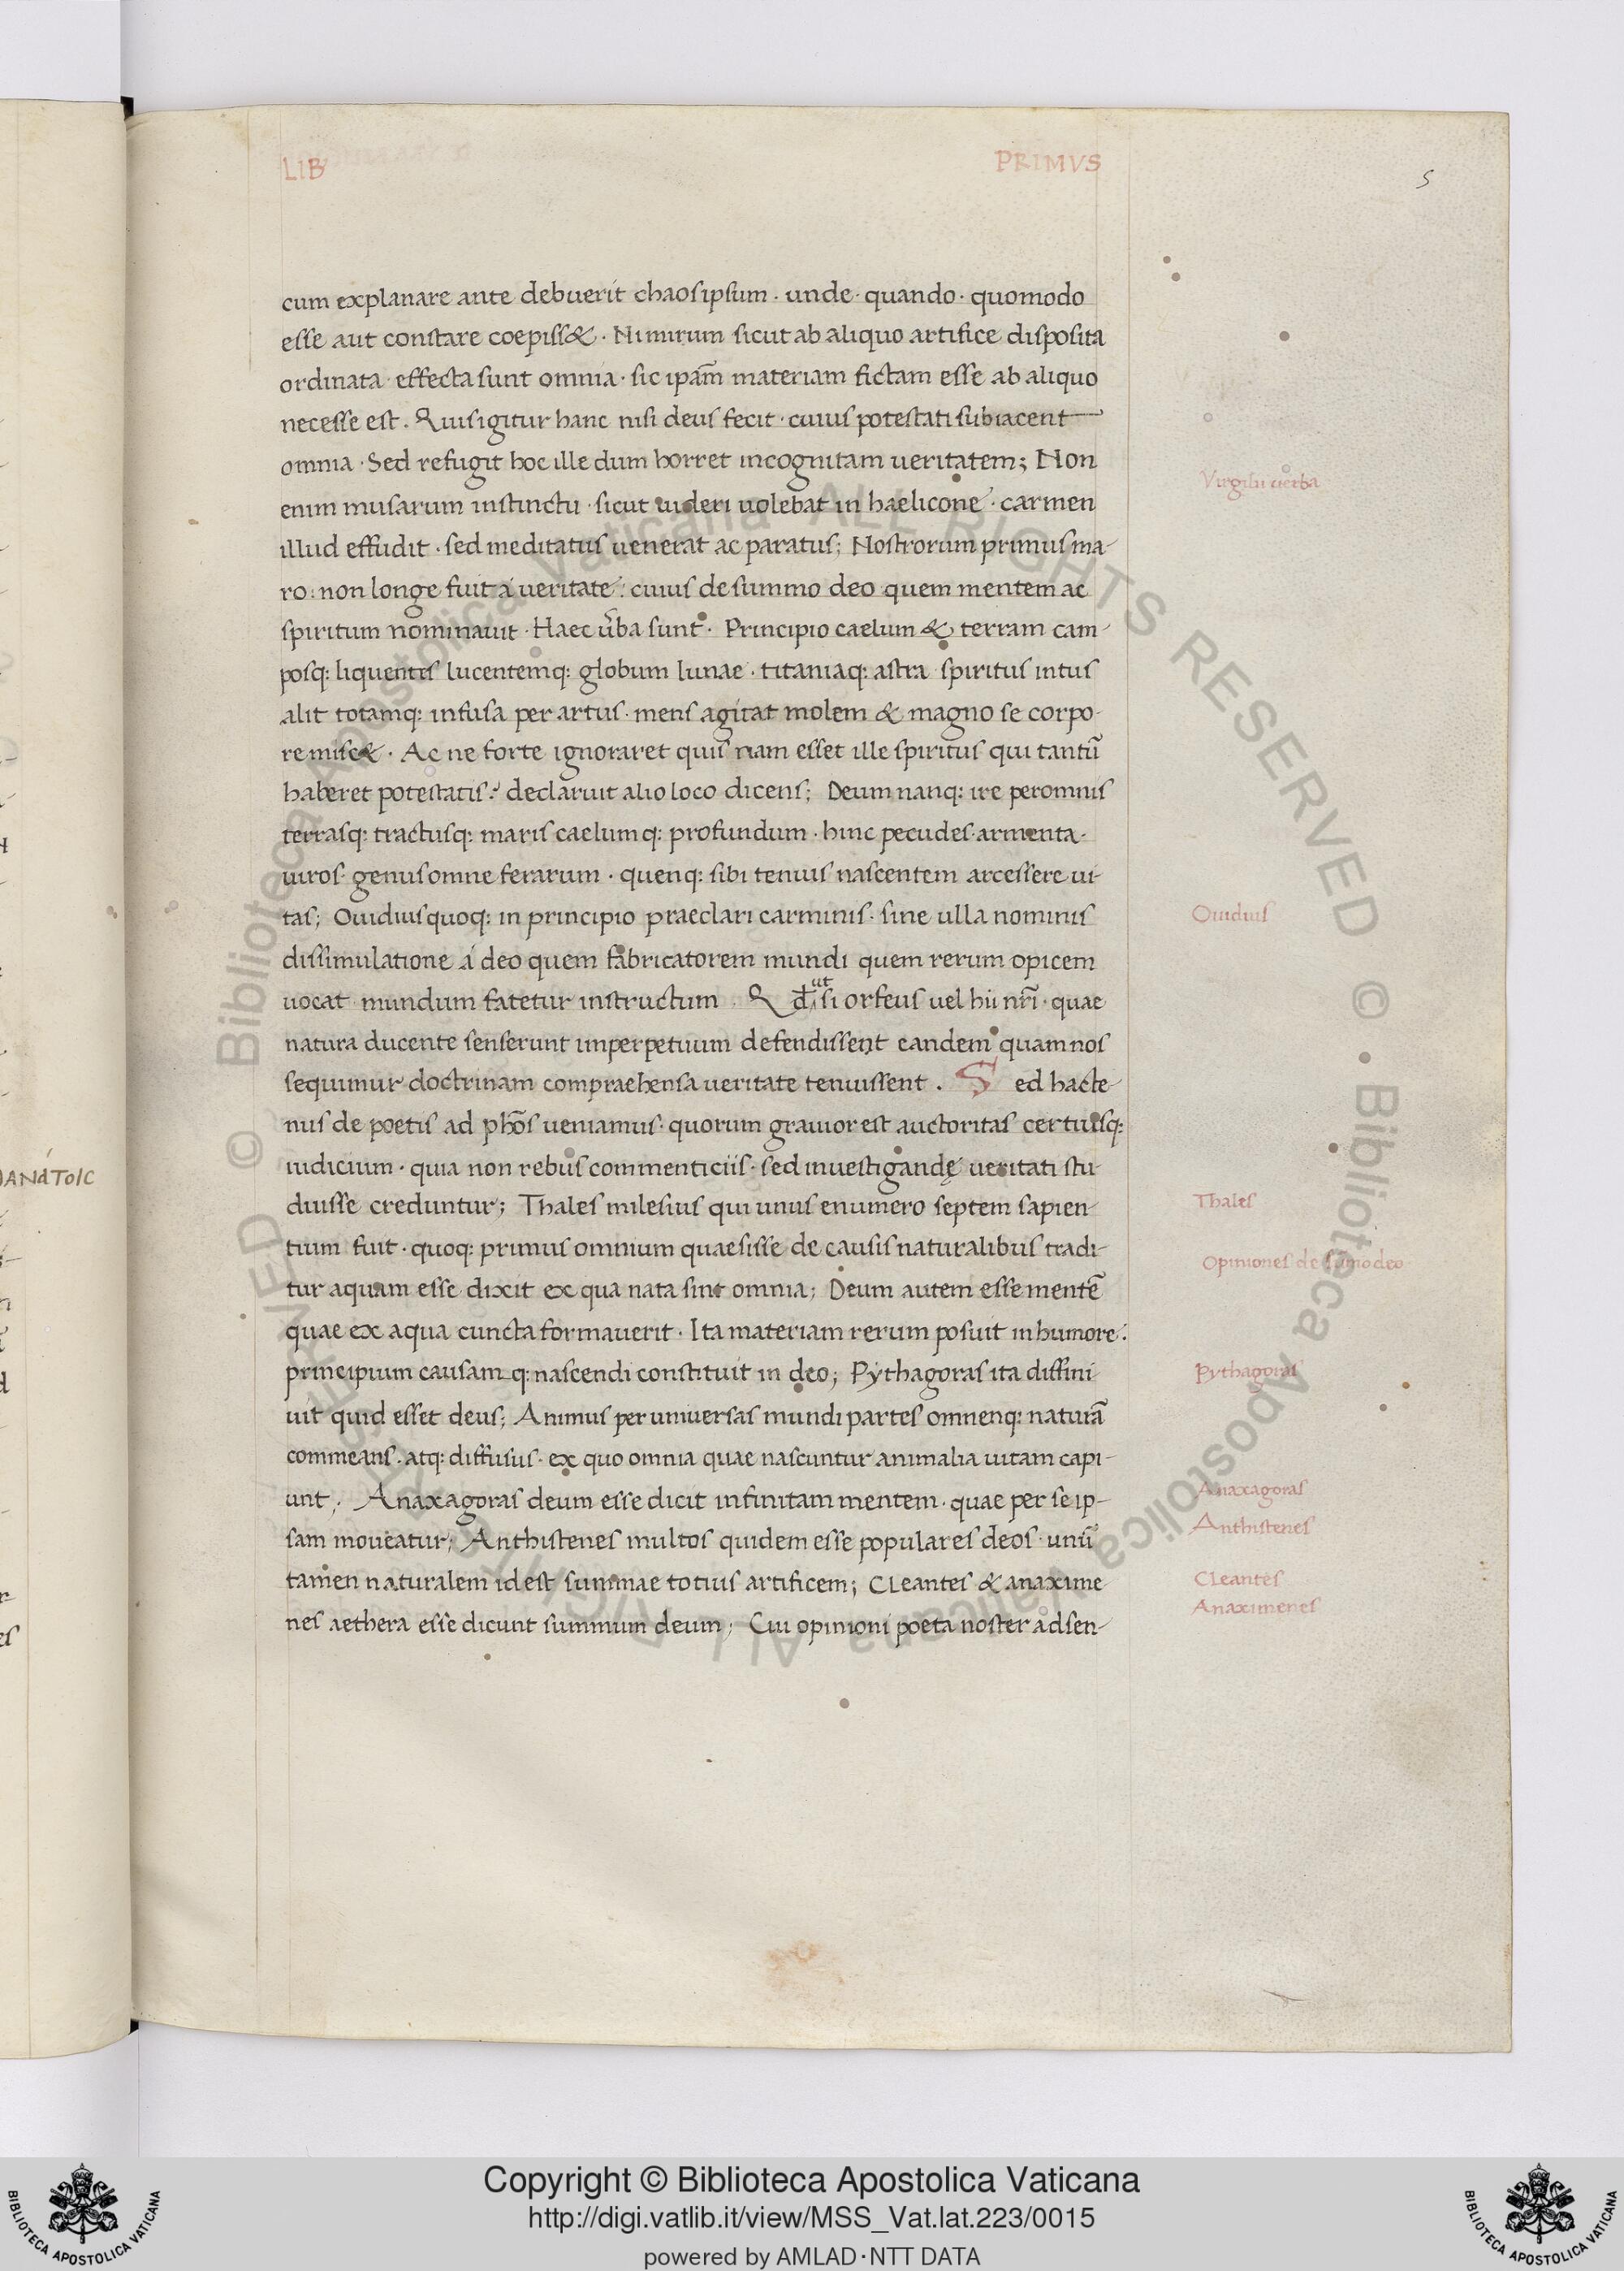 LIB PRIMVS
5
cum explanare ante debuerit chaos ipsum · unde · quando · quomodo
esse aut constare coepiss& · Nimirum sicut ab aliquo artifice disposita
ordinata · effecta sunt omnia · sic ipam̄ materiam fictam esse ab aliquo
necesse est . Quis igitur hanc nisi deus fecit · cuius potestati subiacent
omnia · Sed refugit hoc ille dum horret incognitam ueritatem; Non
Virgilii uerba
enim musarum instinctu · sicut uideri uolebat in haelicone · carmen
illud effudit · sed meditatus uenerat ac paratus; Nostrorum primus ma-
ro: non longe fuit á ueritate: cuius de summo deo quem mentem ac
spiritum nominauit · Haec ūba sunt · Principio caelum & terram cam-
posq: liquentis lucentemq: globum lunae · titaniaq: astra spiritus intus
alit totamq: infusa per artus · mens agitat molem & magno se corpo-
re misc& · Ac ne forte ignoraret quis nam esset ille spiritus qui tantū
haberet potestatis: declaruit alio loco dicens; Deum nanq: ire per omnis
terrasq: tractusq: maris caelumq: profundum · hinc pecudes · armenta ·
uiros · genus omne ferarum · quenq: sibi tenuis nascentem arcessere ui-
tas; Ouidius quoq: in principio praeclari carminis · sine ulla nominis
Ouidius
dissimulatione á deo quem fabricatorem mundi quem rerum opicem
uocat · mundum fatetur instructum . Qđ ut si orfeus uel hii nr̄i · quae
natura ducente senserunt imperpetuum defendissent eandem quam nos
sequimur doctrinam compraehensa ueritate tenuissent . Sed hacte-
nus de poetis ad phōs ueniamus · quorum grauior est auctoritas certusq:
iudicium · quia non rebus commenticiis · sed inuestigandę ueritati stu-
duisse creduntur; Thales milesius qui unus enumero septem sapien-
Thales
tium fuit · quoq: primus omnium quaesisse de causis naturalibus tradi-
Opiniones de sūmo deo
tur aquam esse dixit ex qua nata sint omnia; Deum autem esse mentē
quae ex aqua cuncta formauerit · Ita materiam rerum posuit in humore:
principium causamq: nascendi constituit in deo; Pythagoras ita diffini-
Pythagoras
uit quid esset deus; Animus per uniuersas mundi partes omnenq: naturā
commeans · atq: diffusus · ex quo omnia quae nascuntur animalia uitam capi-
unt; Anaxagoras deum esse dicit infinitam mentem · quae per se ip-
Anaxagoras
sam moueatur; Anthistenes multos quidem esse populares deos · unū
Anthistenes
tamen naturalem id est summae totius artificem; Cleantes & anaxime
Cleantes
nes aethera esse dicunt summum deum; Cui opinioni poeta noster adsen-
Anaximenes
ANáTOIC
© Biblioteca Apostolica Vaticana ALL RIGHTS RESERVED © • Biblioteca Apostolica Vaticana ALL RIGHTS RESERVED
Copyright © Biblioteca Apostolica Vaticana
http://digi.vatlib.it/view/MSS_Vat.lat.223/0015
powered by AMLAD·NTT DATA
BIBLIOTECA APOSTOLICA VATICANA
BIBLIOTECA APOSTOLICA VATICANA